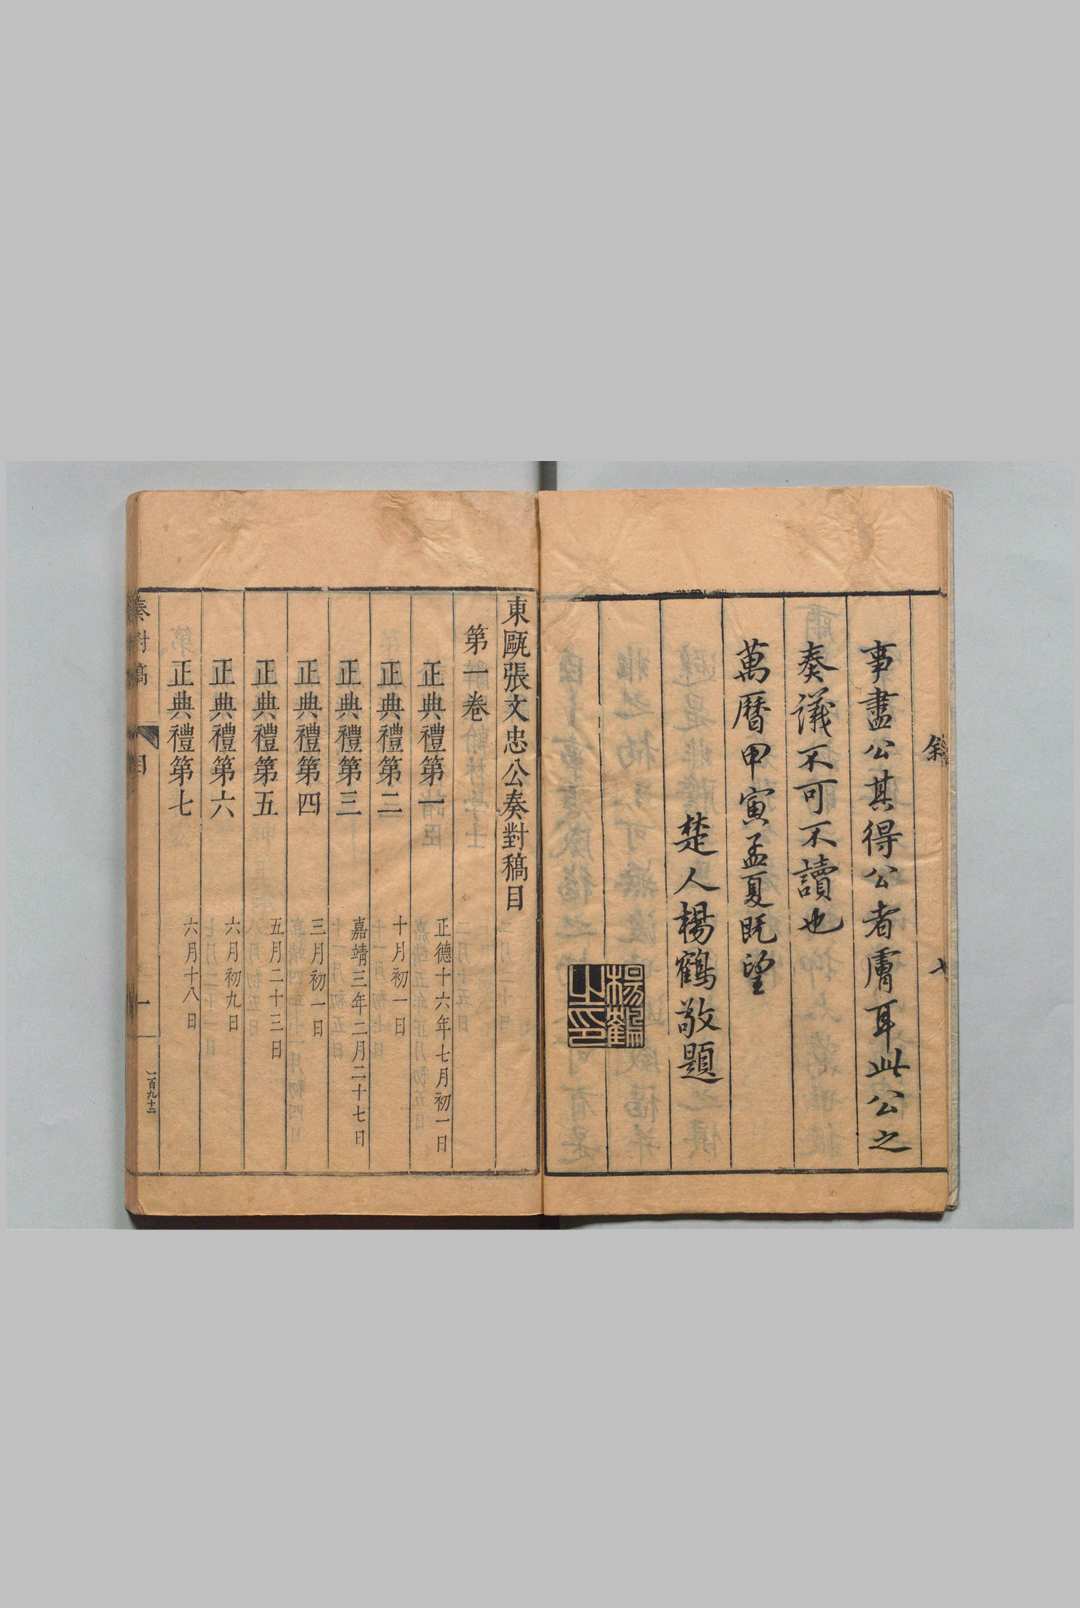 敘
七
事盡公其得公者膚耳此公之
奏議不可不讀也
萬曆甲寅孟夏旣望
楚人楊鶴敬題
楊鶴之印
東甌張文忠公奏對稿目
第一卷
正典禮第一 正德十六年七月初一日
正典禮第二 十月初一日
正典禮第三 嘉靖三年二月二十七日
正典禮第四 三月初一日
正典禮第五 五月二十三日
正典禮第六 六月初九日
正典禮第七 六月十八日
奏對稿
目
一
一百九十二